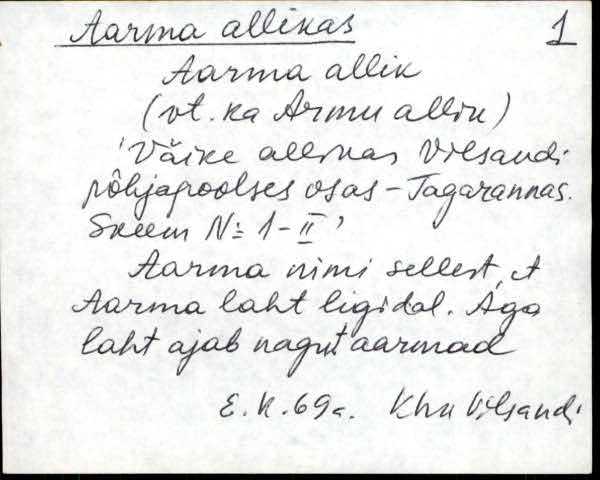 Aarma allikas 1
Aarma allik
(vt. ka Armu allik)
'Väike allikas Vilsandi
põhjapoolses osas - Tagarannas.
Skeem № 1-II'
Aarma nimi sellest, et
Aarma laht ligidal. Aga
laht ajab nagu aarmad
E.K. 69a. Khk Vilsandi